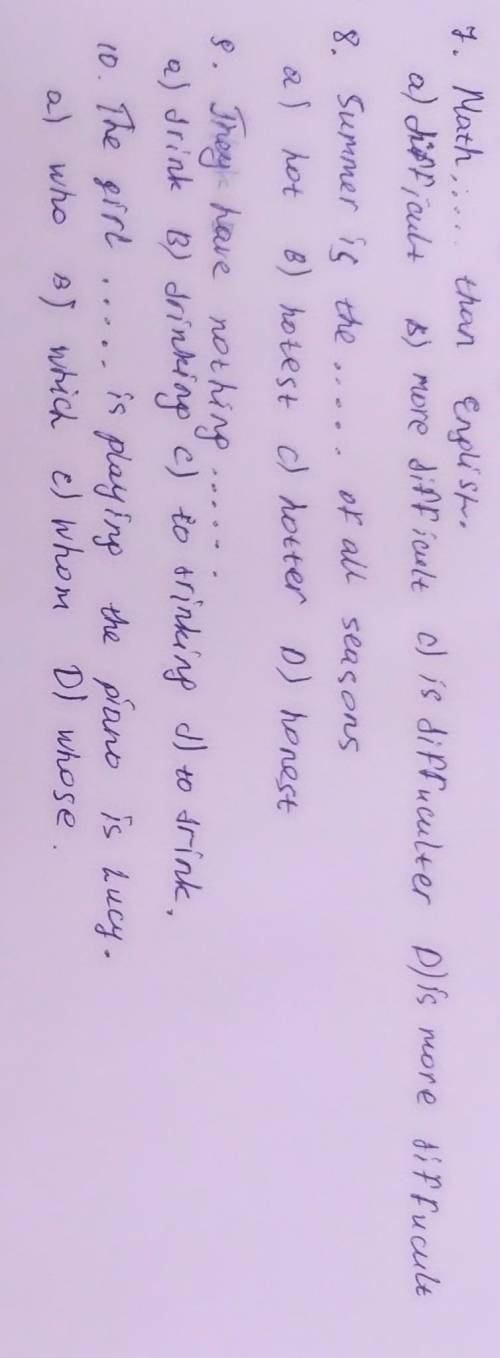 7. Math,..... than English.
a) difficult B) more difficult c) is diffuculter D) is more diffucult
8. Summer is the ...... of all seasons
a) hot B) hotest c) hotter D) honest
9. They have nothing .......
a) drink B) drinking c) to trinking d) to drink.
10. The girl ...... is playing the piano is Lucy.
a) who B) which c) whom D) whose.